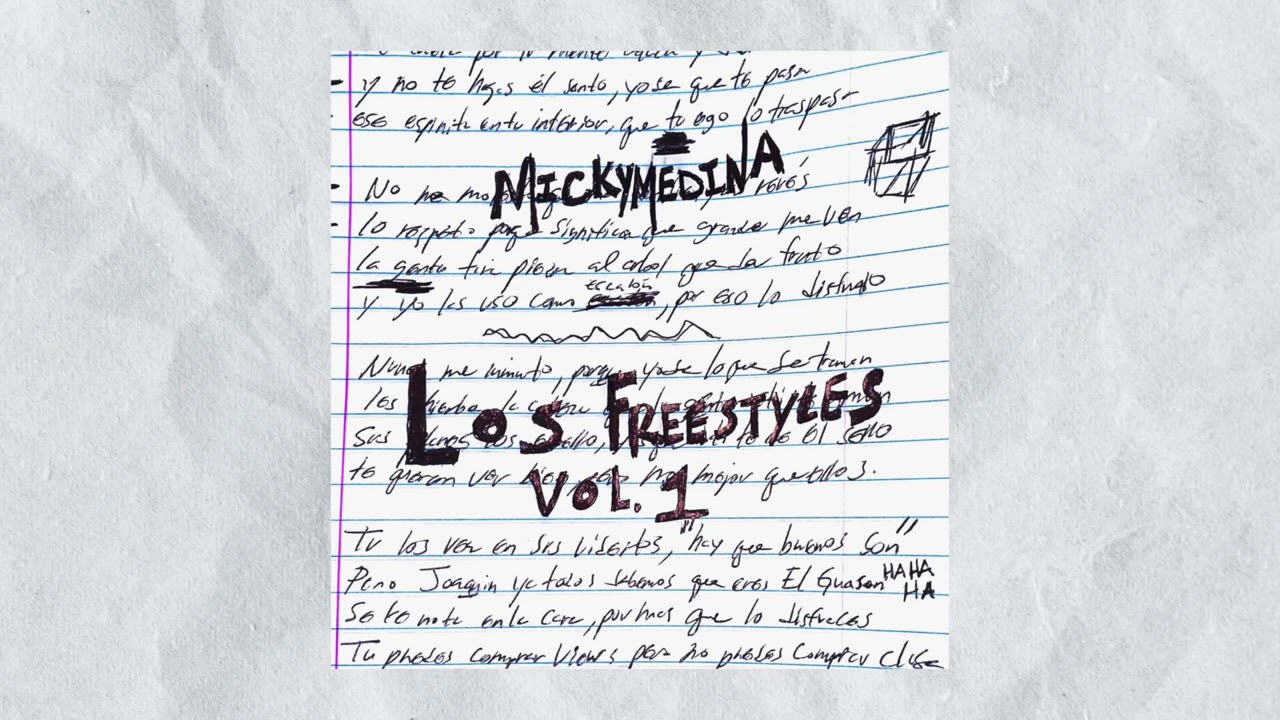 y no te hagas él santo, yo se que te pasa
ese espiritu en tu interior, que lo traspasa
MICKYMEDINA
No me
lo respeto porqe significa que grande me ven
la gente tira piedra al arbol que da fruto
escalón
y yo los uso como, por eso lo disfruto
Nunca me inmuto, porqe yo se lo que se traman
les la
LOS FREESTYLES
Sus el sello
te quieren ver bien, pero no mejor que ellos.
VOL. 1
Tu los ves en sus videitos, "hay que buenos son"
Pero Joaquin ya todos sabemos que eres El Guason HAHA
HA
Se te nota en la cara, por mas que lo disfraces
Tu puedes comprar views pero no puedes comprar clase